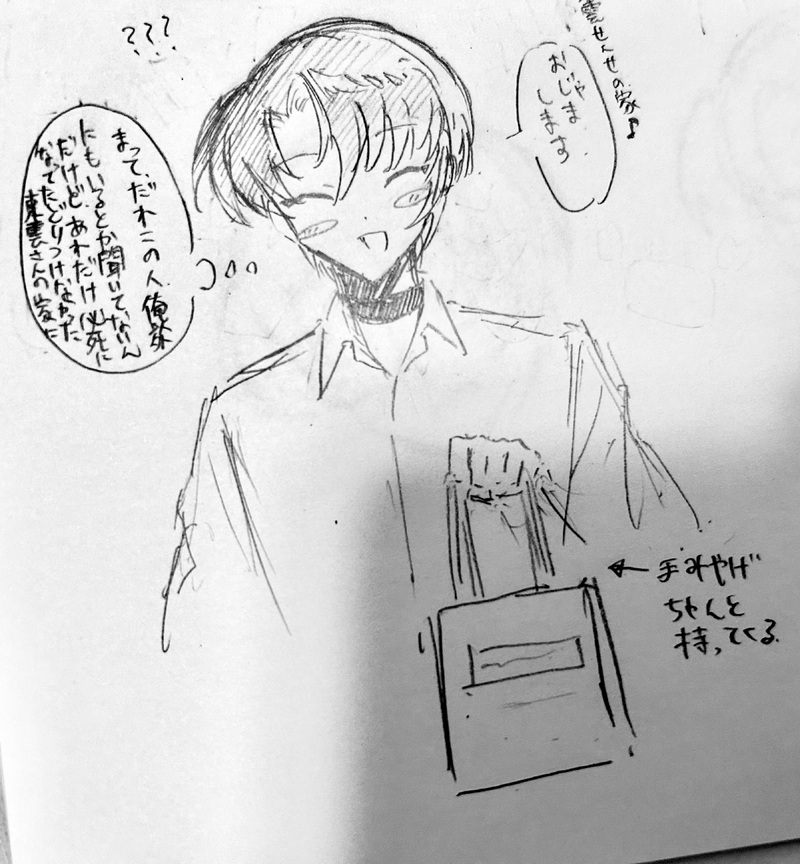 雲せんせの家♪
おじゃま
します
???
まって、だれこの人、俺以外
にもいるとか聞いてないん
だけど、あれだけ必死に
なってたどりつけなかった
東雲さんの家に
手みやげ
ちゃんと
持ってくる